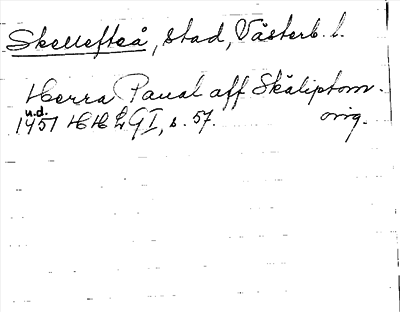 Skellefteå, stad, Västerb. l.
Herra Paual aff Skäliptom.
u.d.
1451 HH L G I, s. 57. orig.